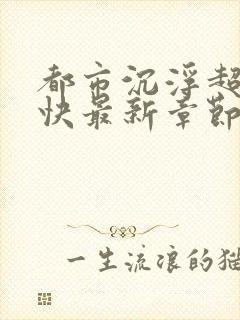 都市沉浮超
快最新章节
一生流浪的猫